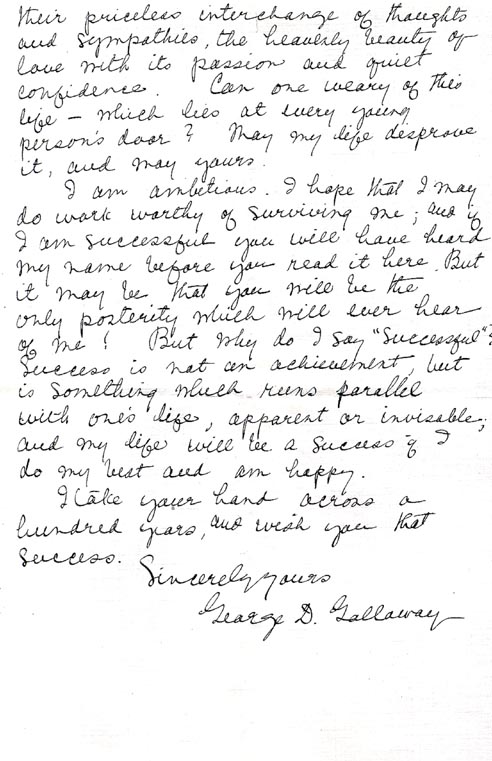 their priceless interchange of thoughts
and sympathies, the heavenly beauty of
love with its passion and quiet
confidence. Can one weary of this
life – which lies at every young
person's door? May my life disprove
it, and may yours.
I am ambitious. I hope that I may
do work worthy of surviving me; and if
I am successful you will have heard
my name before you read it here. But
it may be that you will be the
only posterity which will ever hear
of me! But why do I say "Successful"?
Success is not an achievement, but
is something which runs parallel
with one's life, apparent or invisable;
and my life will be a success if I
do my best and am happy.
I take your hand across a
hundred years, and wish you that
success.
Sincerely yours
George D. Gallaway